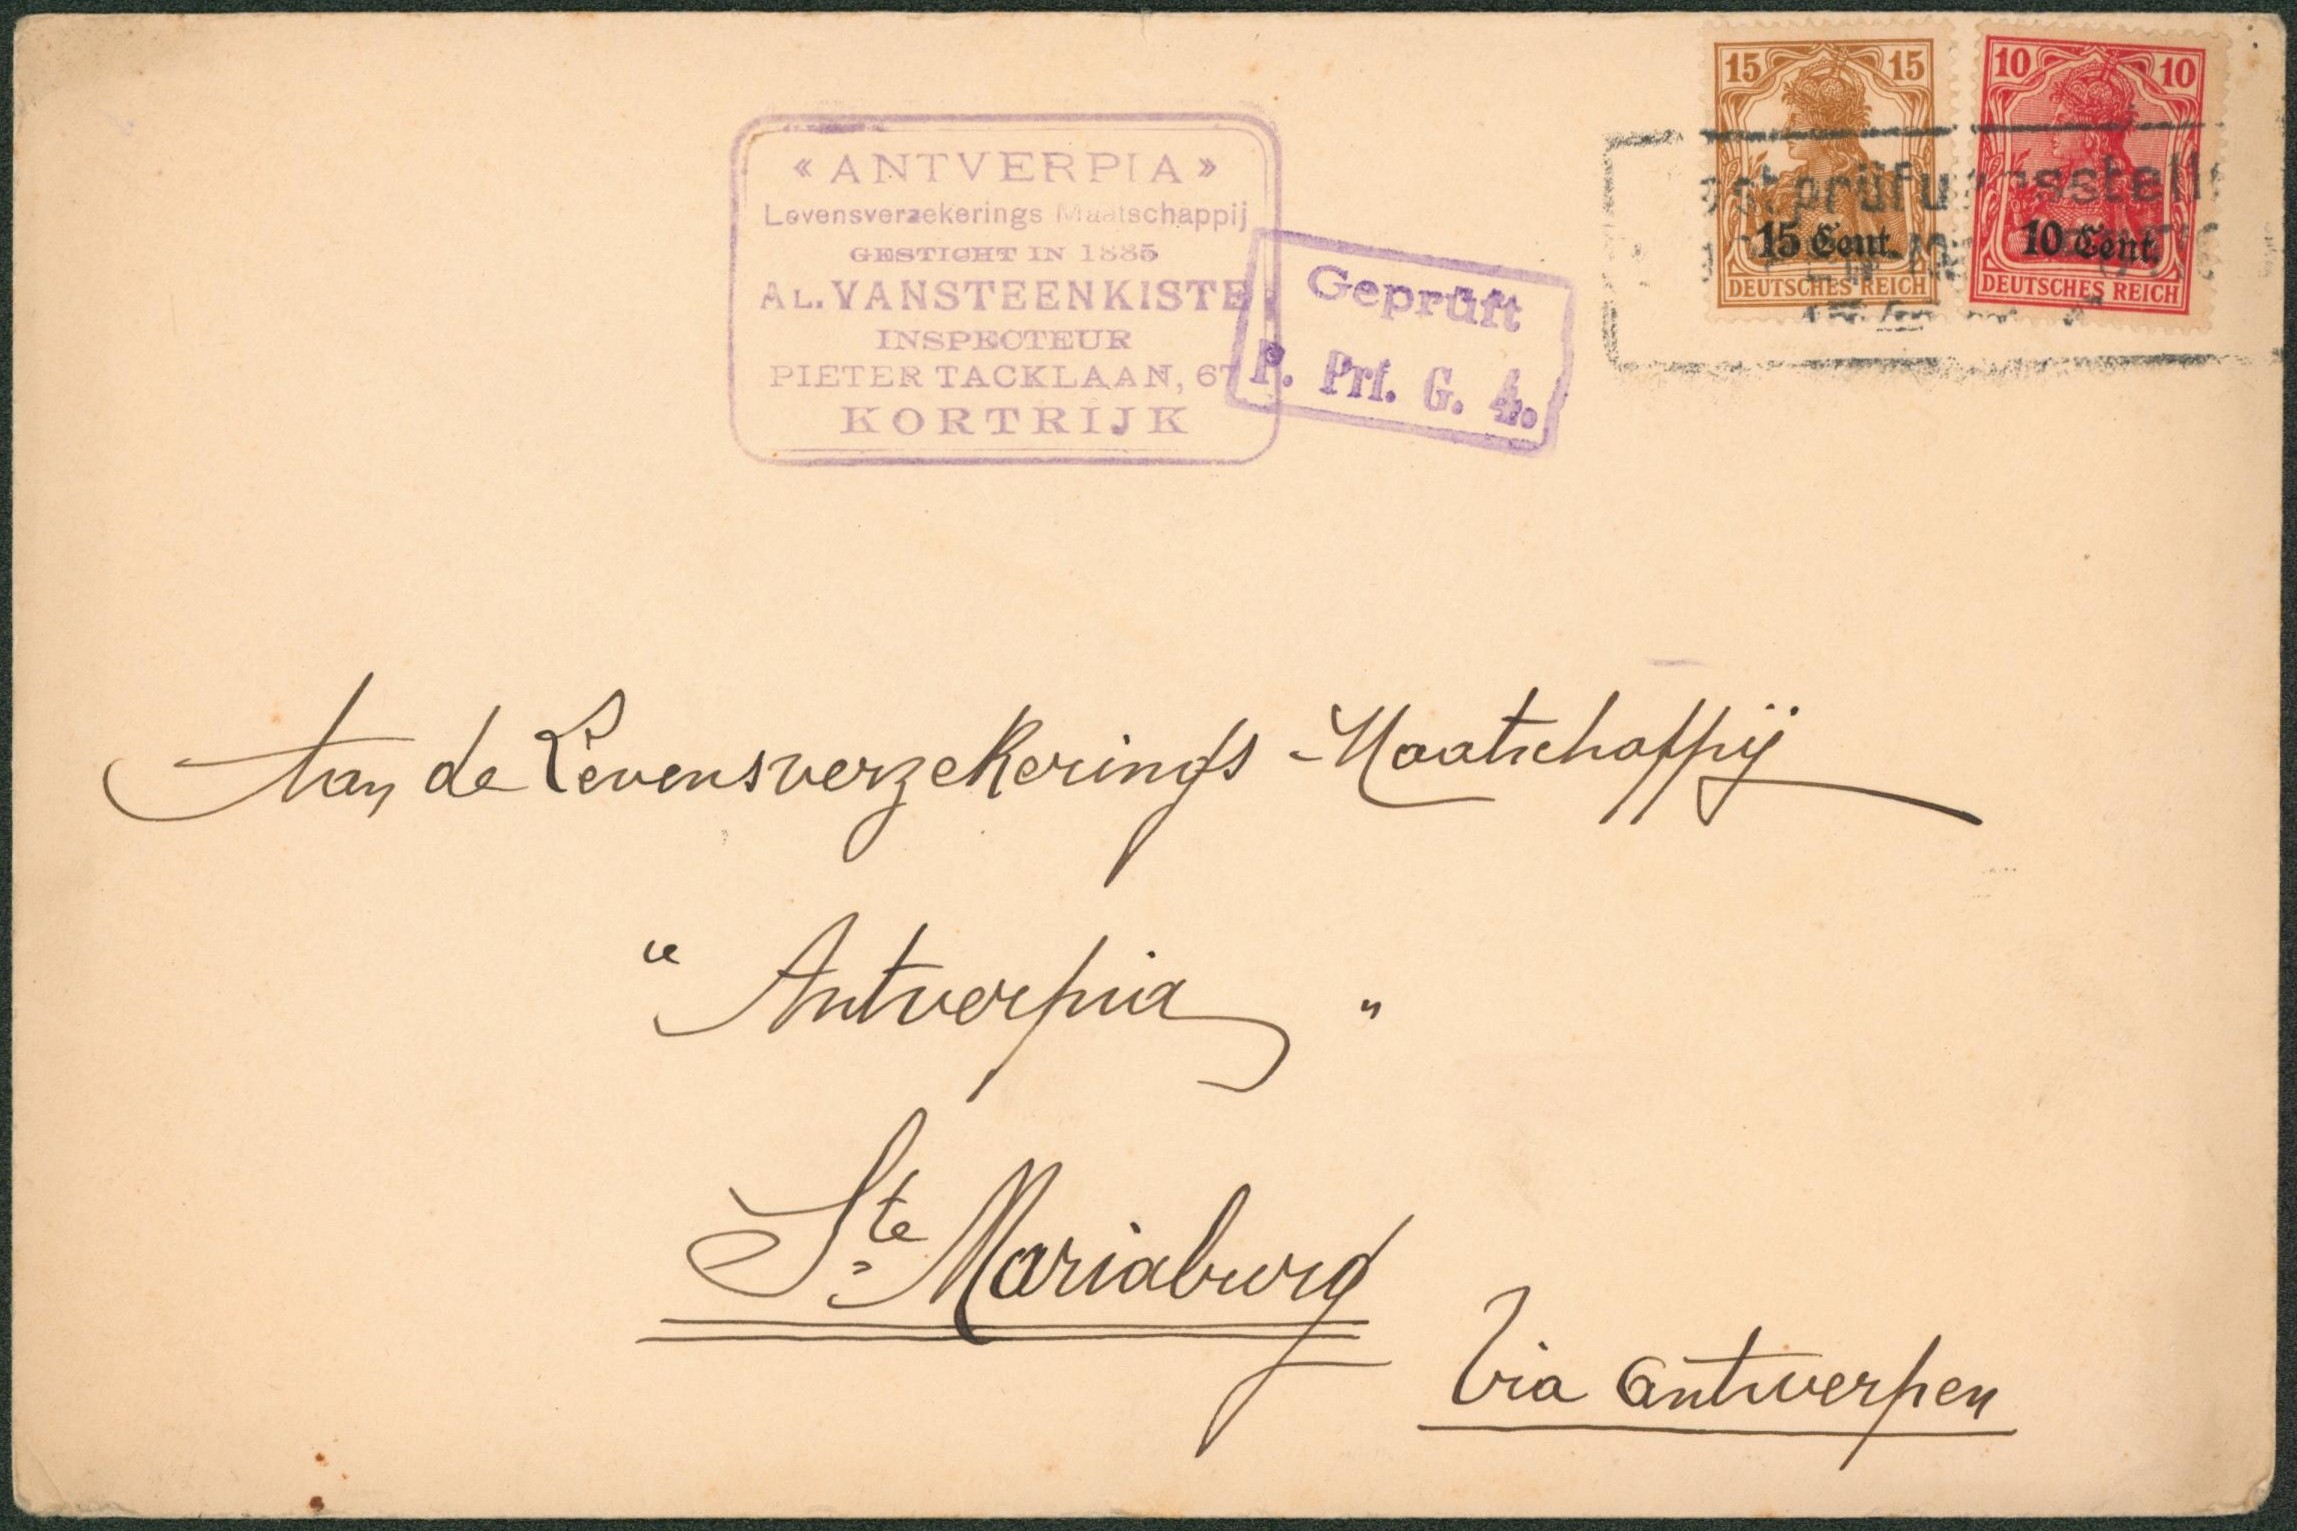 « ANTVERPIA »
Levensverzekerings Maatschappij
GESTICHT IN 1885
AL. VANSTEENKISTE
INSPECTEUR
PIETER TACKLAAN, 67
KORTRIJK
Geprüft
P. Prf. G. 4.
15 15
15 Cent.
DEUTSCHES REICH
10 10
10 Cent.
DEUTSCHES REICH
Aan de Levensverzekerings-Maatschappij
"Antverpia"
Ste Mariaburg
Via Antwerpen